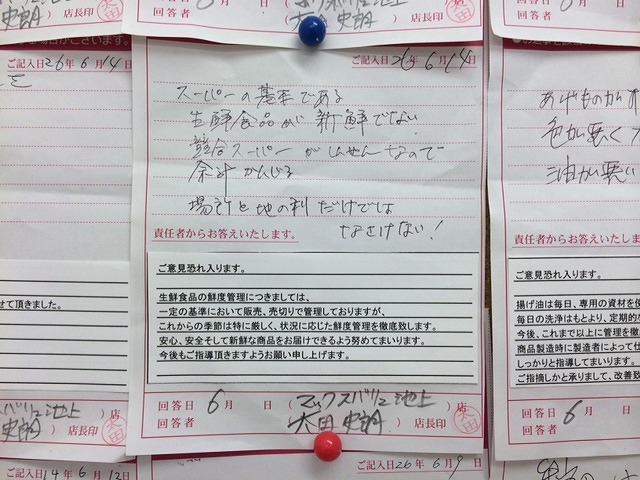 回答者 太田史朗 店長印
ご記入日 26年6月14
ご記入日 26年6月14
スーパーの基本である
生鮮食品が新鮮でない
競合スーパーがしんせんなので
余計かんじる
場所と地の利だけでは
なさけない!
責任者からお答えいたします。
ご意見恐れ入ります。
生鮮食品の鮮度管理につきましては、
一定の基準において販売、売切りで管理しておりますが、
これからの季節は特に厳しく、状況に応じた鮮度管理を徹底致します。
安心、安全そして新鮮な商品をお届けできるよう努めてまいります。
今後もご指導頂きますようお願い申し上げます。
回答日 6月 日 (マックスバリュ池上)店
回答者 太田史朗 店長印 太田
ご記入日 26年6月9
せて頂きました。
店
史朗 店長印 太田
ご記入日 14年6月12
あげものが
色が悪く
油が悪い
責任者からお答えいたします。
ご意見恐れ入ります。
揚げ油は毎日、専用の資材を使
毎日の洗浄はもとより、定期的な
今後、これまで以上に管理を徹
商品製造時に製造者によって仕
しっかりと指導してまいります。
ご指摘しかと承りまして、改善致
回答日 6月
回答者